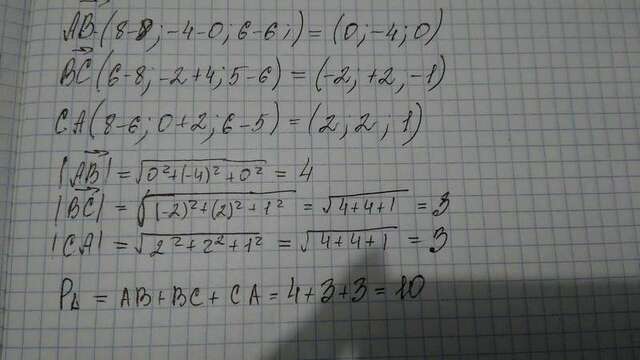 AB (8-8; -4-0; 6-6;) = (0; -4; 0)
BC (6-8; -2+4; 5-6) = (-2; +2, -1)
CA (8-6; 0+2; 6-5) = (2; 2; 1)
|AB| = √0²+(-4)²+0² = 4
|BC| = √(-2)²+(2)²+1² = √4+4+1 = 3
|CA| = √2²+2²+1² = √4+4+1 = 3
P∆ = AB+BC+CA = 4+3+3 = 10